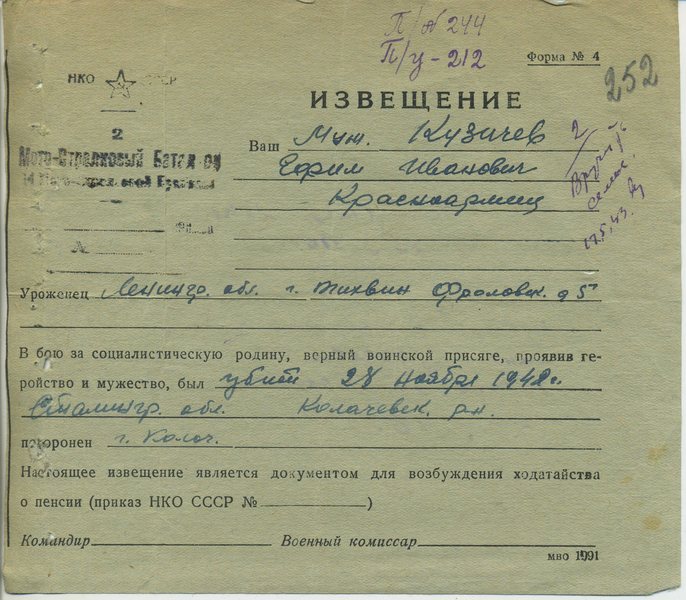 П/№ 244
П/у - 212
Форма № 4
252
НКО СССР
ИЗВЕЩЕНИЕ
2
Мото-Стрелковый Батальон
Ваш Муж. Кузичев
Ефим Иванович
Красноармиц
2/ Вручить
семье.
17.5.43.
№
Уроженец Ленингр. обл. г. Тихвин Фроловск. д 5
В бою за социалистическую родину, верный воинской присяге, проявив ге-
ройство и мужество, был убит 28 ноября 1942 г.
Сталингр. обл. Колачевск. рн.
похоронен г. Колоч.
Настоящее извещение является документом для возбуждения ходатайства
о пенсии (приказ НКО СССР № )
Командир Военный комиссар
МВО 1991